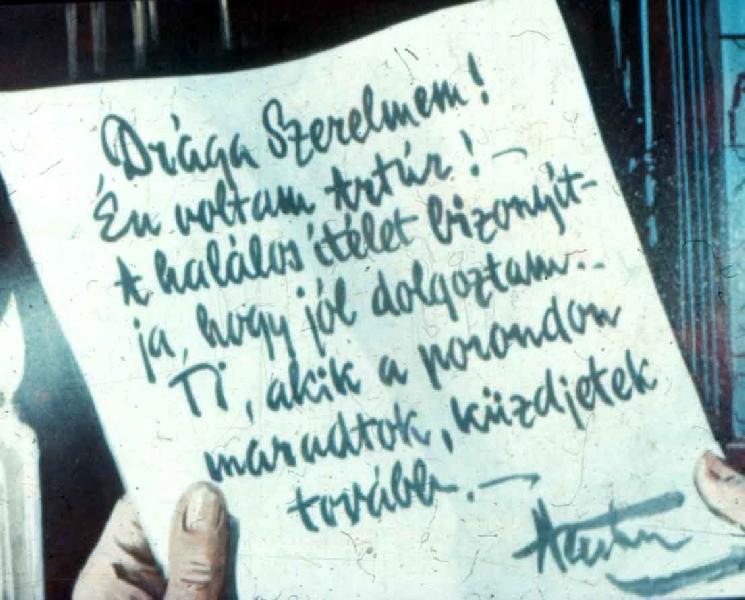 Drága Szerelmem!
Én voltam Artúr! -
A halálos ítélet bizonyít-
ja, hogy jól dolgoztam..
Ti, akik a porondon
maradtok, küzdjetek
tovább. -